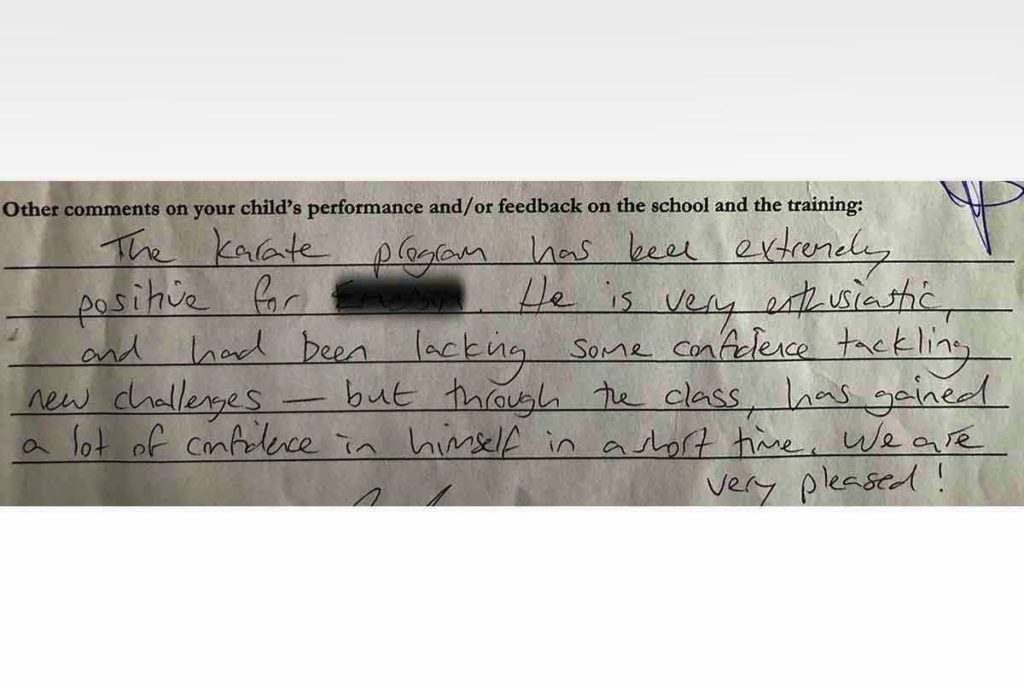 Other comments on your child's performance and/or feedback on the school and the training:
The karate program has been extremely
positive for . He is very enthusiastic,
and had been lacking some confidence tackling
new challenges — but through the class, has gained
a lot of confidence in himself in a short time. We are
very pleased!